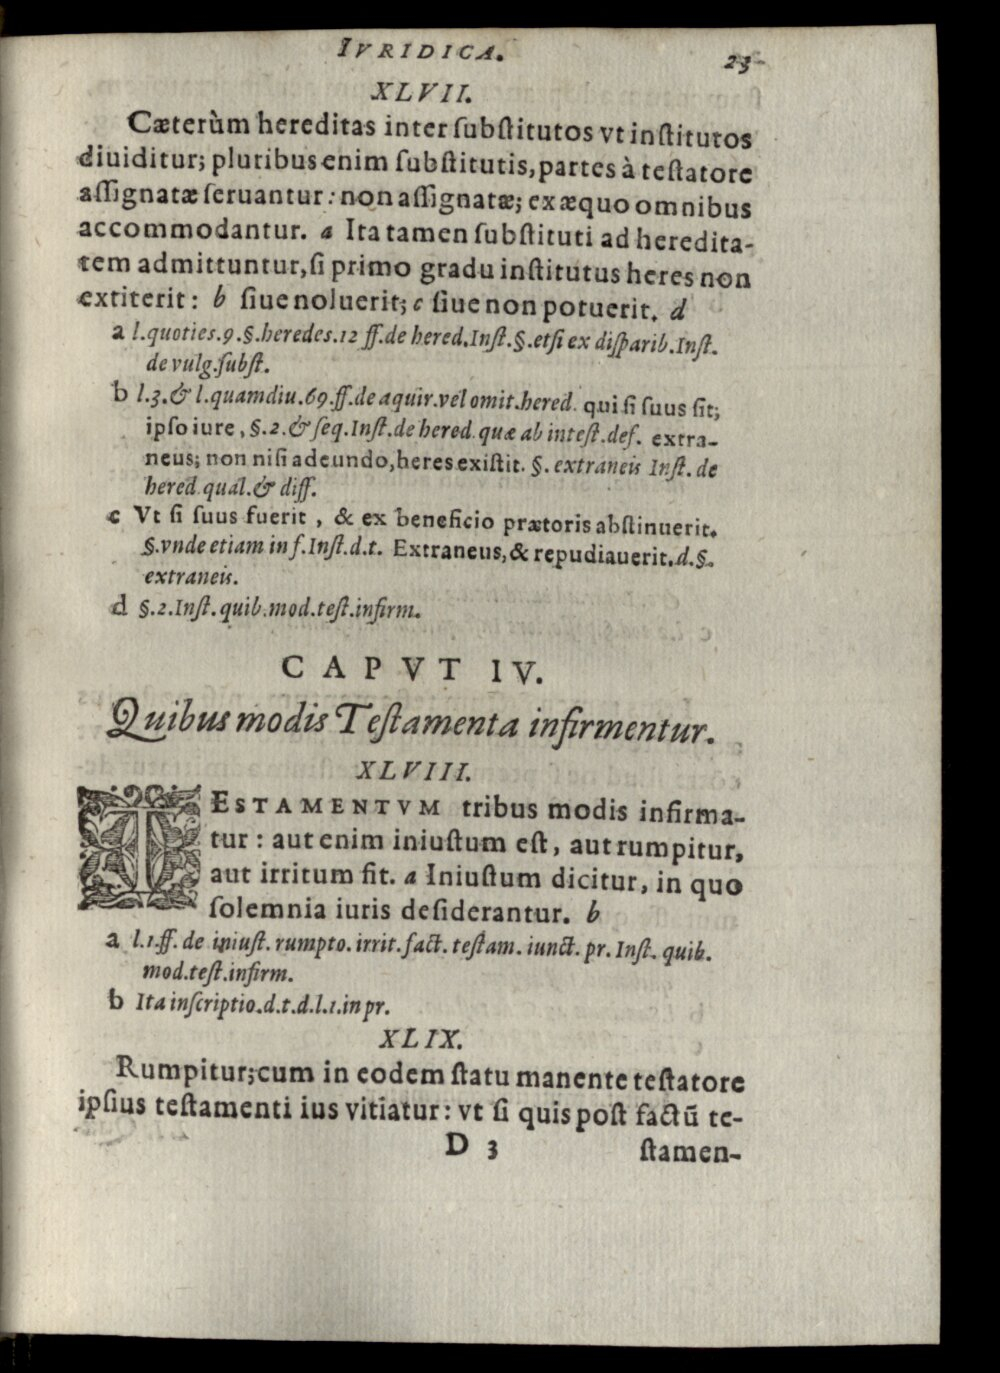 IVRIDICA. 23
XLVII.
Cæterùm hereditas inter ſubſtitutos vt inſtitutos
diuiditur; pluribus enim ſubſtitutis, partes à teſtatore
aſſignatæ ſeruantur: non aſſignatæ; ex æquo omnibus
accommodantur. a Ita tamen ſubſtituti ad heredita-
tem admittuntur, ſi primo gradu inſtitutus heres non
extiterit: b ſiue noluerit; c ſiue non potuerit. d
a l.quoties.9.§.heredes.12 ff.de hered.Inſt.§.etſi ex diſparib.Inſt.
de vulg.ſubſt.
b l.3.& l.quamdiu.69.ff.de aquir.vel omit.hered. qui ſi ſuus ſit;
ipſo iure, §.2.& ſeq.Inſt.de hered.quæ ab inteſt.def. extra-
neus; non niſi adeundo, heres exiſtit. §. extraneis Inſt. de
hered.qual.& diff.
c Vt ſi ſuus fuerit, & ex beneficio prætoris abſtinuerit.
§.vnde etiam in f.Inſt.d.t. Extraneus, & repudiauerit.d.§.
extraneis.
d §.2.Inſt.quib.mod.teſt.infirm.
CAPVT IV.
Quibus modis Teſtamenta infirmentur.
XLVIII.
TESTAMENTVM tribus modis infirma-
tur: aut enim iniuſtum eſt, aut rumpitur,
aut irritum fit. a Iniuſtum dicitur, in quo
ſolemnia iuris deſiderantur. b
a l.1.ff. de iniuſt. rumpto. irrit. fact. teſtam. iunct. pr. Inſt. quib.
mod.teſt.infirm.
b Ita inſcriptio.d.t.d.l.1.in pr.
XLIX.
Rumpitur; cum in eodem ſtatu manente teſtatore
ipſius teſtamenti ius vitiatur: vt ſi quis poſt factũ te-
D 3 ſtamen-